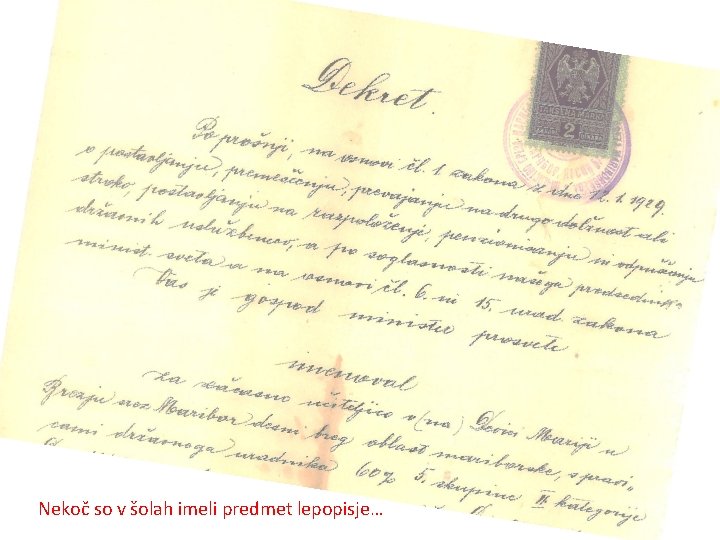 Dekret.
Po prošnji, na osnovi čl. 1. zakona z dne 12.1.1929.
o postavljanju, premeščenju, prevajanju na drugo dolžnost ali
stroko, postavljanju na razpoloženje, penzioniranju in odpuščenju
državnih uslužbencev, a po soglasnosti našega predsednik-
minist. sveta a na osnovi čl. 6. in 15. urad. zakona
Vas je gospod minister prosvete
imenoval
za začasno učiteljico v (na) Devici Mariji v
Brezju srez Maribor desni breg oblast mariborske, s pravi„
cami državnega uradnika 60% 5. skupine II. kategorije
2
Nekoč so v šolah imeli predmet lepopisje…